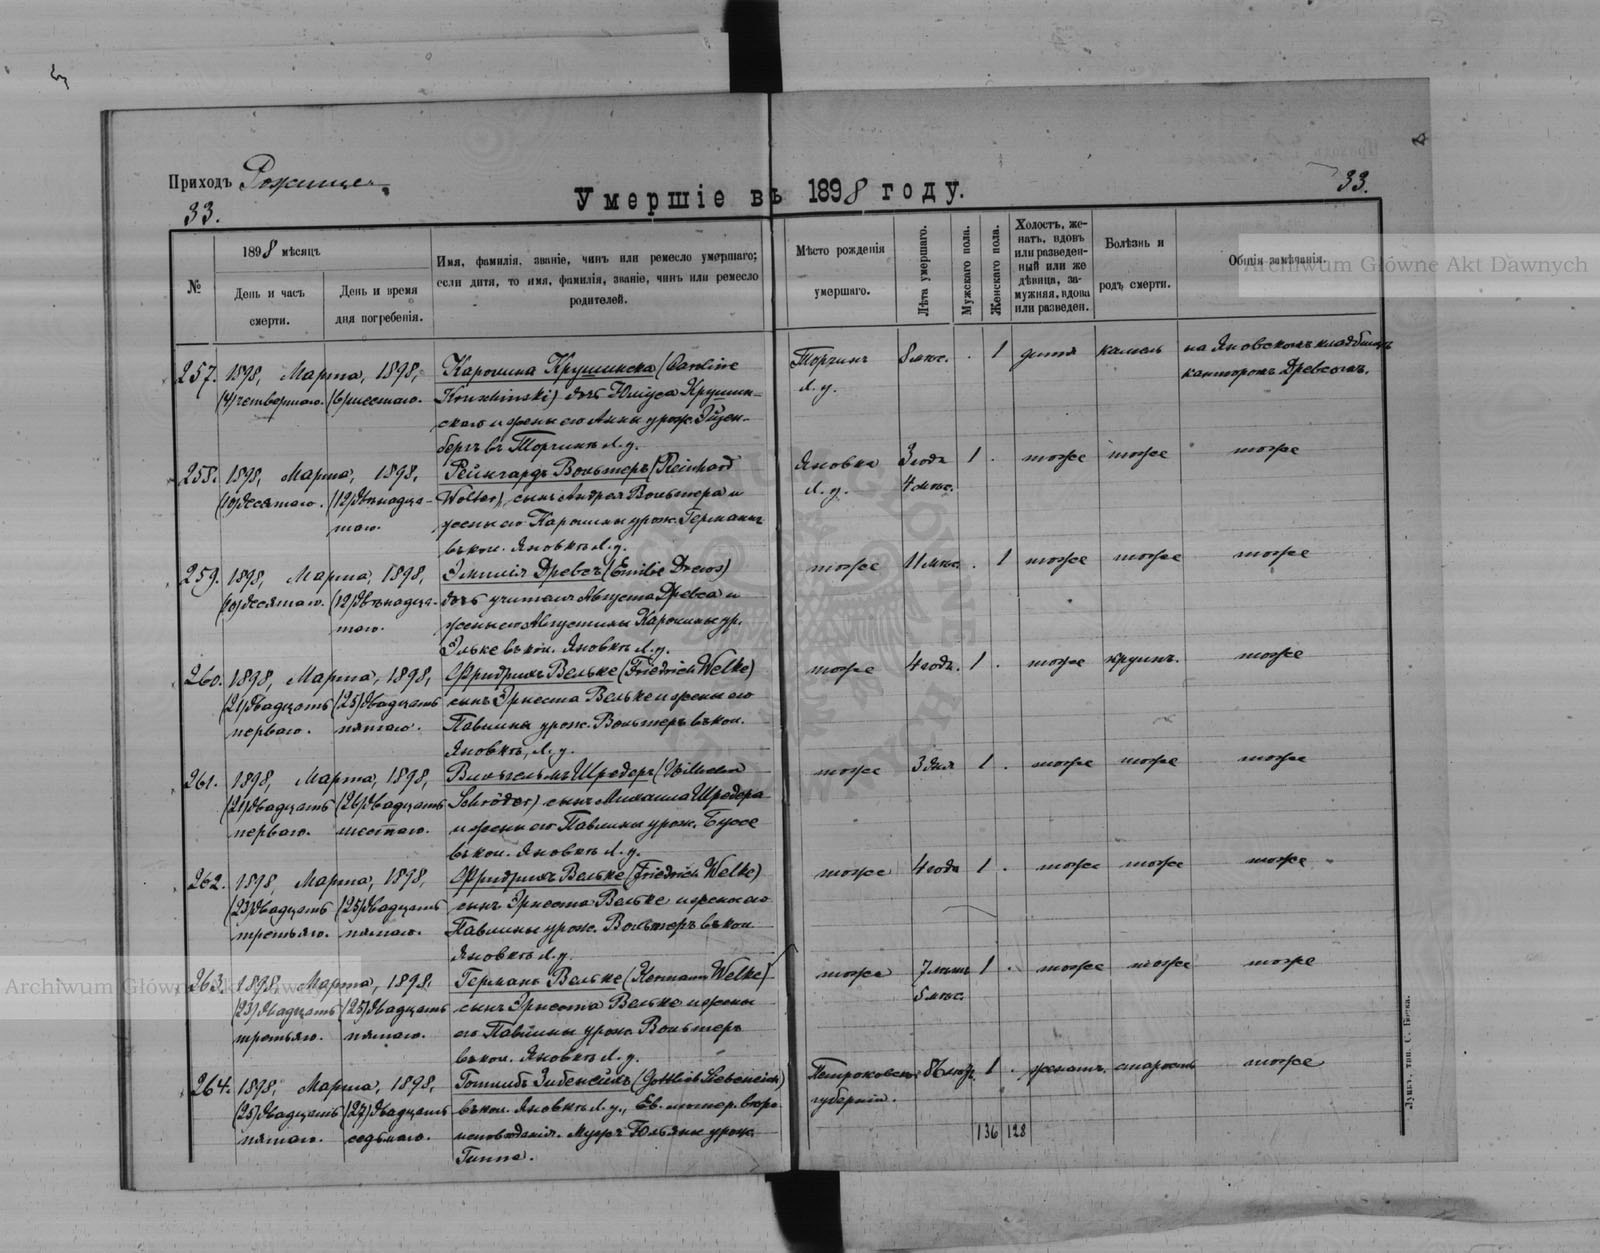 Приходъ Рожище.
33.
Умершіе въ 1898 году.
33.
№
1898 мѣсяцъ
День и часъ смерти.
День и время дня погребенія.
Имя, фамилія, званіе, чинъ или ремесло умершаго;
если дитя, то имя, фамилія, званіе, чинъ или ремесло
родителей.
Мѣсто рожденія
умершаго.
Лѣта умершаго.
Мужскаго пола.
Женскаго пола.
Холостъ, же-
натъ, вдовъ
или разведен-
ный или же
дѣвица, за-
мужняя, вдова
или разведен.
Болѣзнь и
родъ смерти.
Общія замѣчанія.
257. 1898, Марта, 1898, Каролина Крушинска (Caroline Торчинъ 8 мѣс. . 1 дитя кашель на Яновскомъ кладбищѣ
(4) четвертаго. (6) шестаго. Kruschinski) дочь Юліуса Крушин- Л. у. канторомъ Древсомъ.
скаго и жены его Анны урож. Эйзен-
бергъ въ Торчинѣ Л. у.
258. 1898, Марта, 1898, Рейнгардъ Вольтеръ (Reinhard Яновка 3 года 1 . тоже тоже тоже
(10) десятаго. (12) двѣнадца- Wolter), сынъ Андрея Вольтера и Л. у. 4 мѣс.
таго. жены его Каролины урож. Германъ
въ кол. Яновкѣ Л. у.
259. 1898, Марта, 1898, Эмилія Древсъ (Emilie Drews) тоже 11 мѣс. . 1 тоже тоже тоже
(10) десятаго. (12) двѣнадца- дочь учителя Августа Древса и
таго. жены его Августины Каролины ур.
Эльке въ кол. Яновкѣ Л. у.
260. 1898, Марта, 1898, Фридрихъ Вельке (Friedrich Welke) тоже 4 года. 1 . тоже крупъ. тоже
(21) двадцать (25) двадцать сынъ Эрнеста Вельке и жены его
перваго. пятаго. Павлины урож. Вольтеръ въ кол.
Яновкѣ, Л. у.
261. 1898, Марта, 1898, Вильгельмъ Шредеръ (Wilhelm тоже 3 дня 1 . тоже тоже тоже
(21) двадцать (26) двадцать Schröder) сынъ Михаила Шредера
перваго. шестаго. и жены его Павлины урож. Буссе
въ кол. Яновкѣ Л. у.
262. 1898, Марта, 1898, Фридрихъ Вельке (Friedrich Welke) тоже 4 года 1 . тоже тоже тоже
(23) двадцать (25) двадцать сынъ Эрнеста Вельке и жены его
третьяго. пятаго. Павлины урож. Вольтеръ въ кол.
Яновкѣ Л. у.
263. 1898, Марта, 1898, Германъ Вельке (Hermann Welke) тоже 7 лѣтъ 1 . тоже тоже тоже
(23) двадцать (25) двадцать сынъ Эрнеста Вельке и жены 5 мѣс.
третьяго. пятаго. его Павлины урож. Вольтеръ
въ кол. Яновкѣ Л. у.
264. 1898, Марта, 1898, Готлибъ Зибенейхъ (Gottlieb Siebeneich) Петроковск. 86 лѣтъ 1 . женатъ. старость тоже
(25) двадцать (27) двадцать въ кол. Яновкѣ Л. у., Ев. лютер. вѣро- губерніи.
пятаго. седьмаго. исповѣданія. Мужъ Юльяны урож.
Гиппе.
136 128
Archiwum Główne Akt Dawnych
Archiwum Główne Akt Dawnych